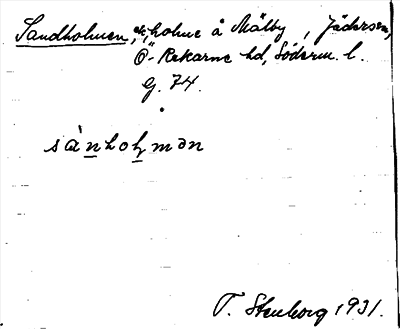 Sandholmen, ek, holme å Mälby, Jäders sn,
Ö-Rekarne hd, Söderm. l.
G. 74.
sànhoɫmən
T. Stenborg 1931.